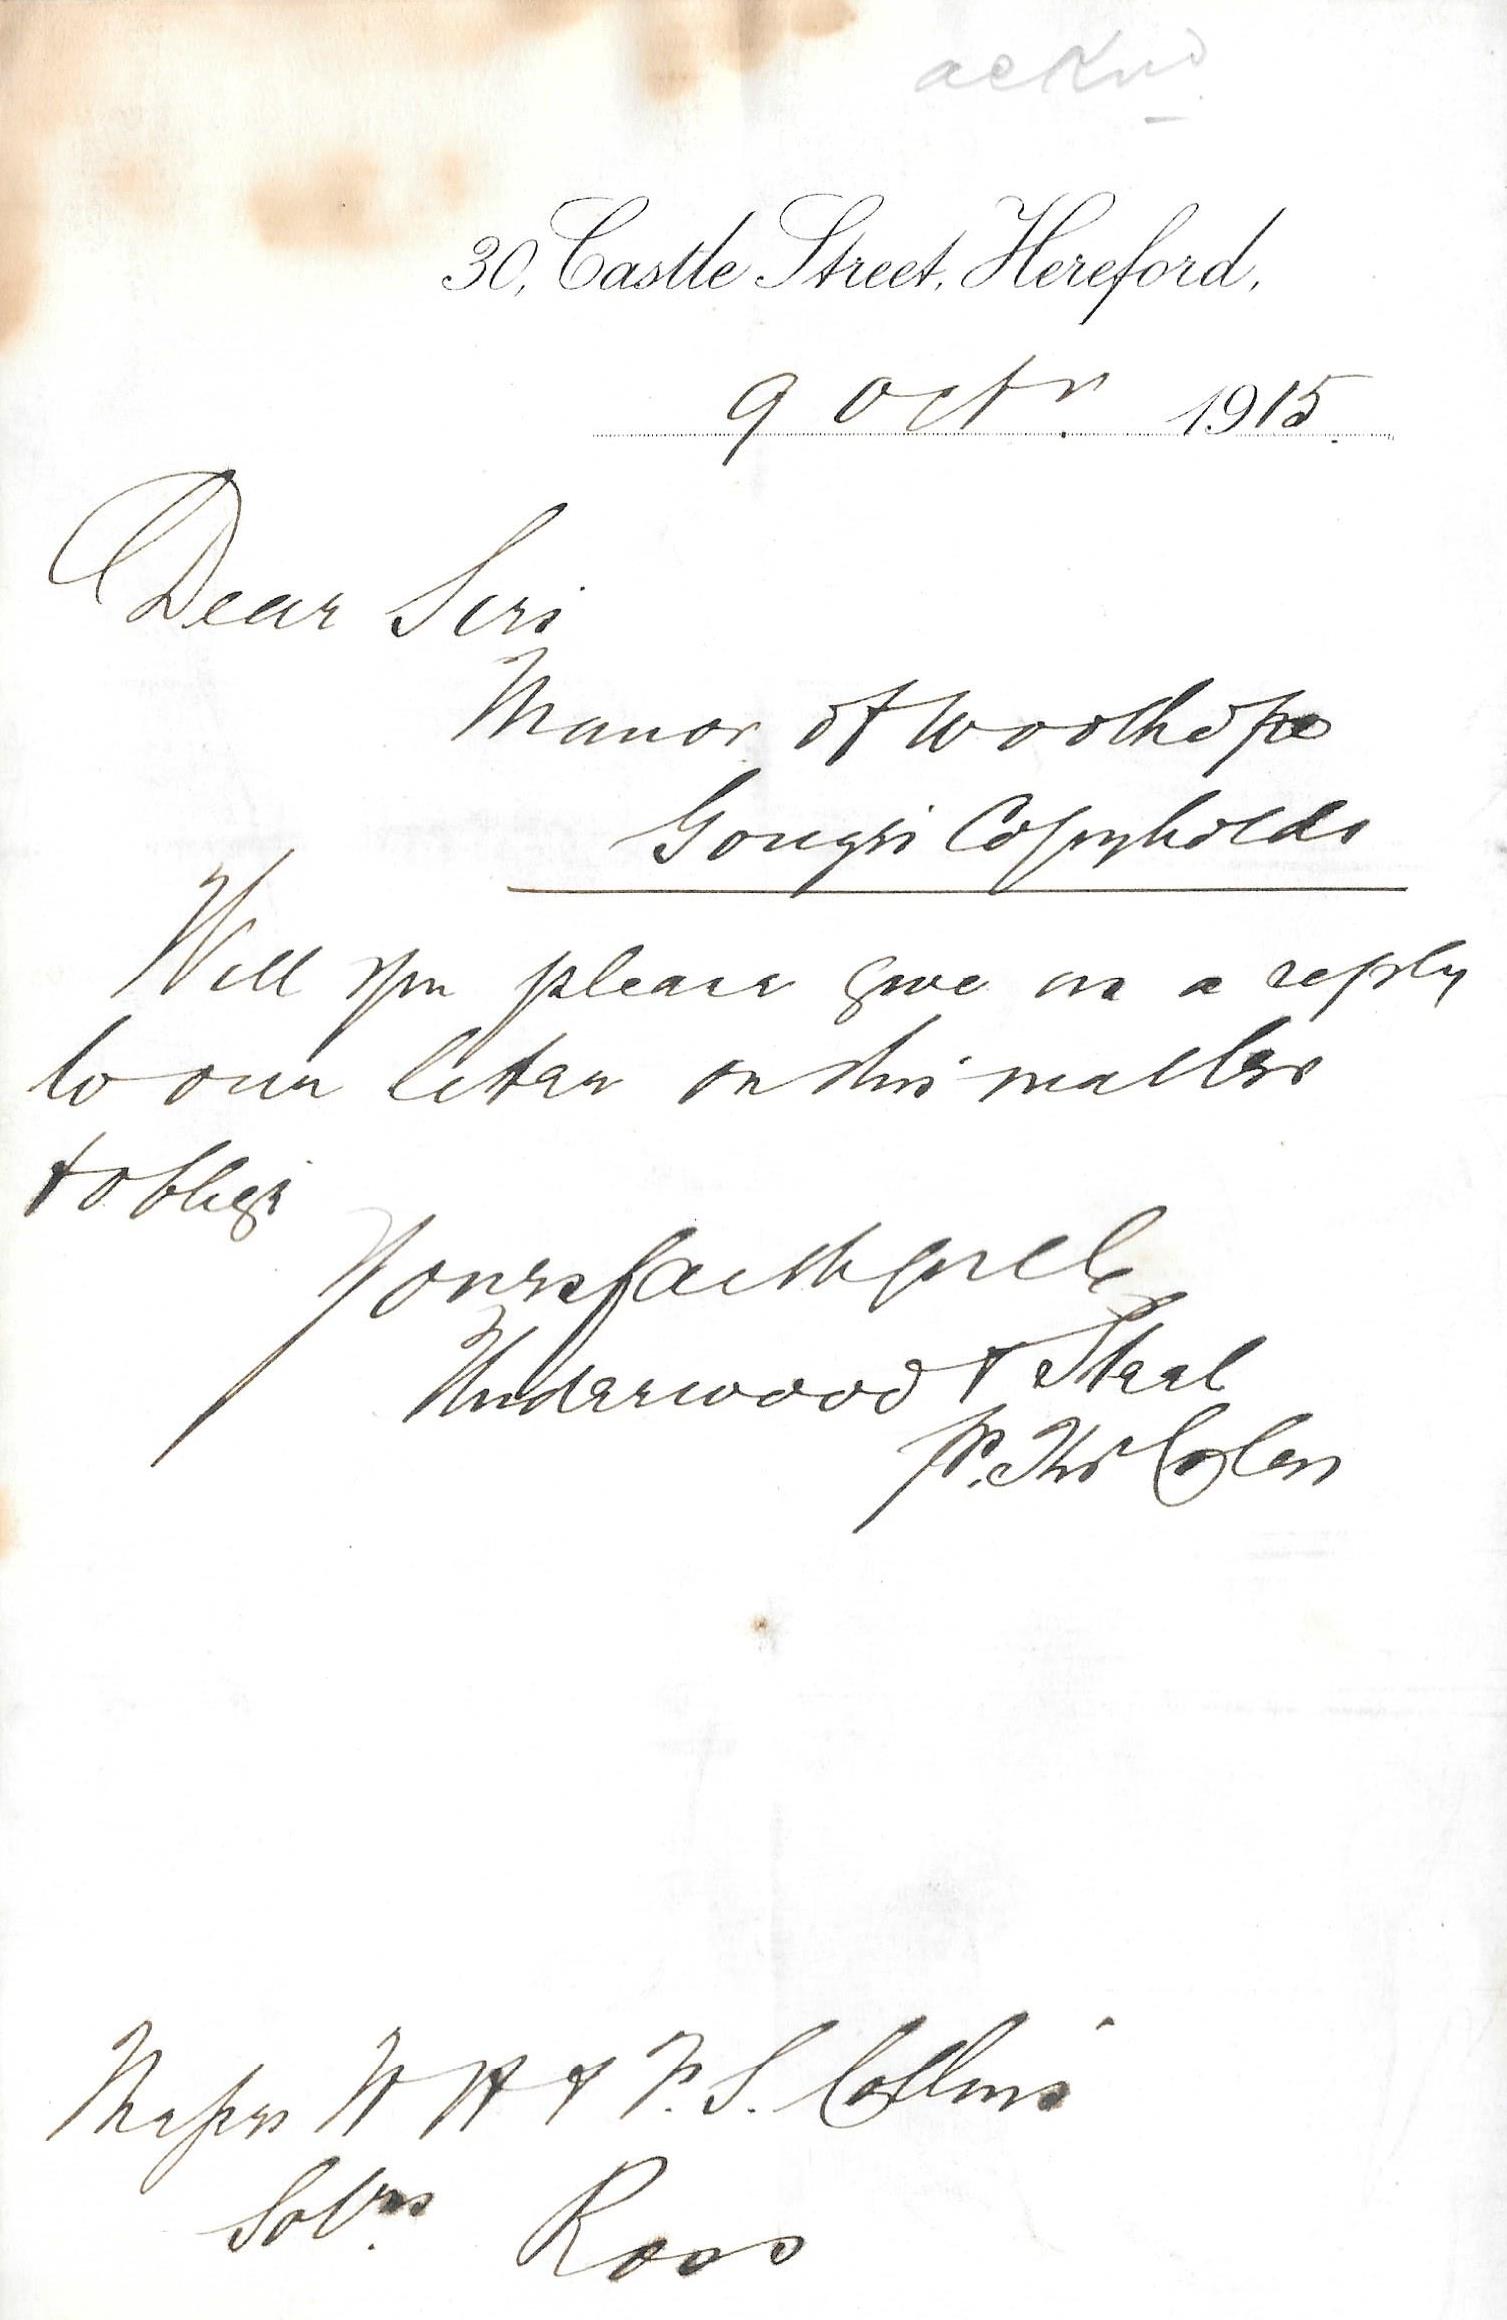 ackd
30, Castle Street, Hereford,
9 Octr. 1915.
Dear Sirs
Manor of Woolhope
Gough's Copyholds
Will you please give us a reply
to our letter on this matter
& oblige
Yours faithfully
Underwood & Steel
p.
Messrs W H & F. S. Collins
Solrs. Ross